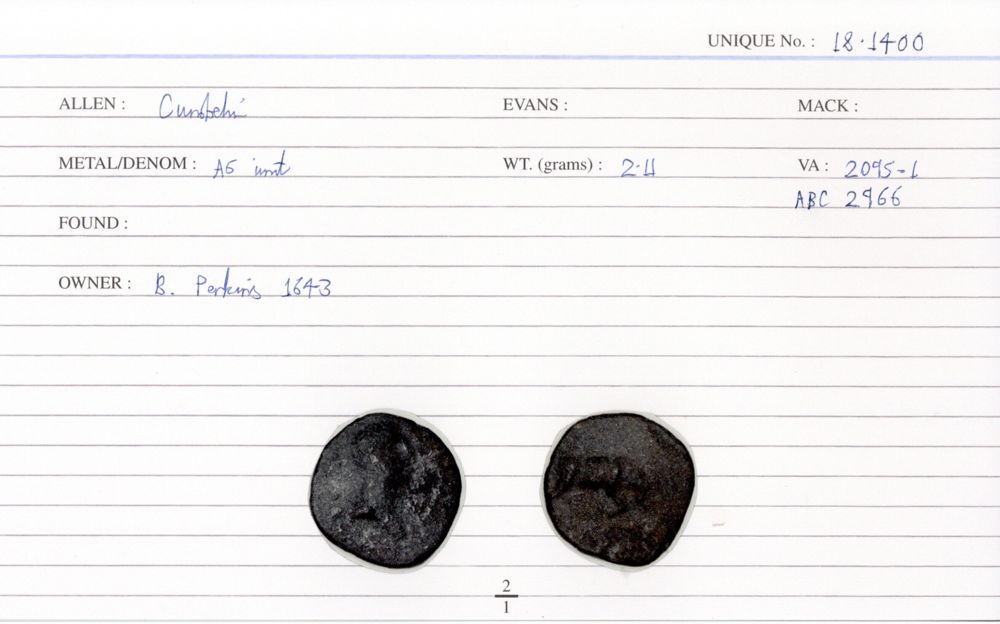 UNIQUE No. : 18·1400
ALLEN : EVANS : MACK :
METAL/DENOM : AE unit WT. (grams) : 2·11 VA : 2095-1
ABC 2966
FOUND :
OWNER : B. Perkins 1643
2
1